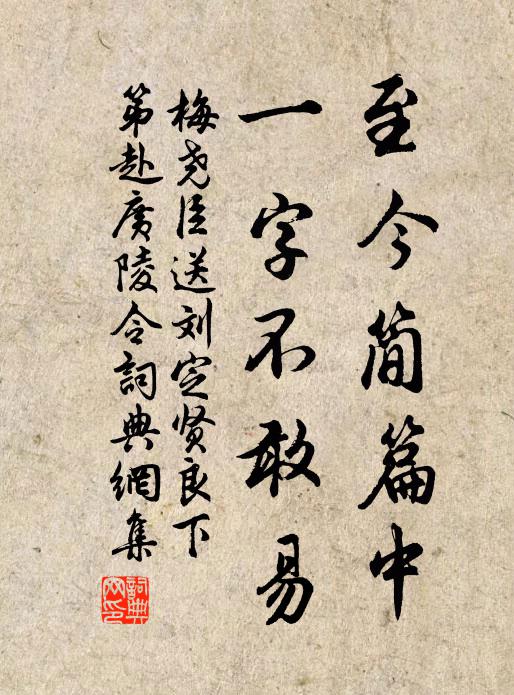 至今简篇中
一字不敢易
梅尧臣送刘定贤良下
第赴广陵令詞典網集
詞典
网印